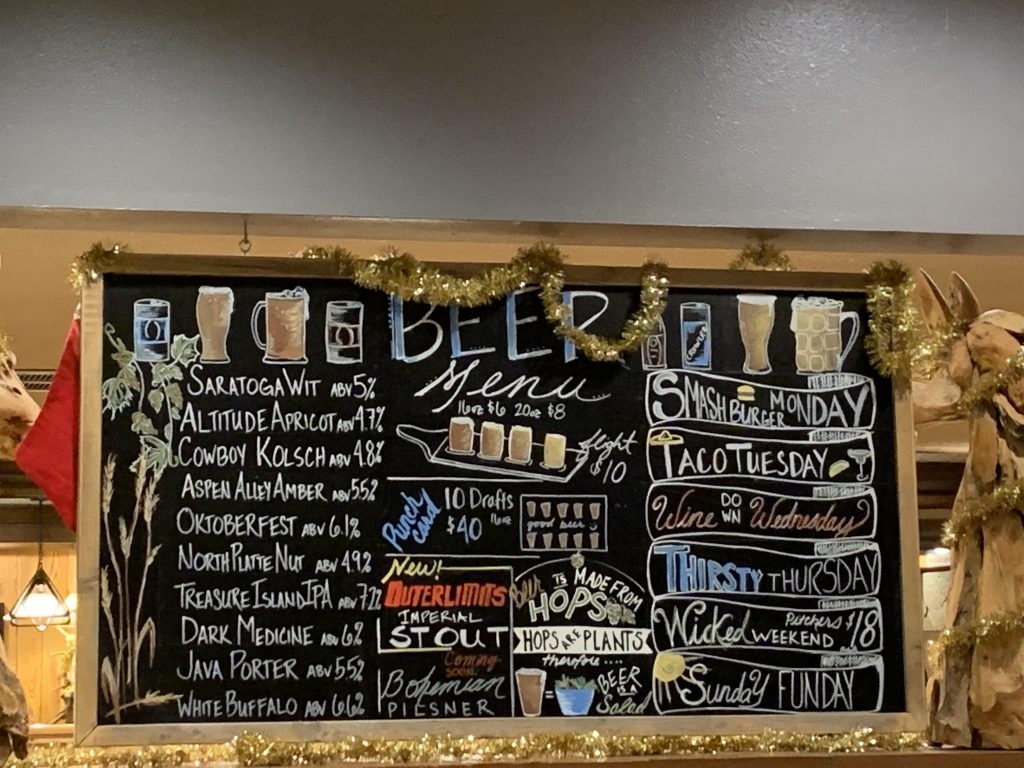 BEER
Menu
16oz $6 20oz $8
flight
$10
SARATOGA WIT ABV 5%
ALTITUDE APRICOT ABV 4.7%
COWBOY KOLSCH ABV 4.8%
ASPEN ALLEY AMBER ABV 5.5%
OKTOBERFEST ABV 6.1%
NORTH PLATTE NUT ABV 4.9%
TREASURE ISLAND IPA ABV 7.2%
DARK MEDICINE ABV 6%
JAVA PORTER ABV 5.5%
WHITE BUFFALO ABV 6.6%
Punch
card
10 Drafts
16oz
$40
good beer :)
New!
OUTERLIMITS
IMPERIAL
STOUT
Coming
SOON
Bohemian
PILSNER
Beer IS MADE FROM
HOPS
HOPS ARE PLANTS
therefore....
BEER
IS A
Salad
CROWLER
SMASHBURGER MONDAY
TACO TUESDAY
Wine DOWN Wednesday
THIRSTY THURSDAY
Wicked WEEKEND Pitchers $18
Sunday FUNDAY